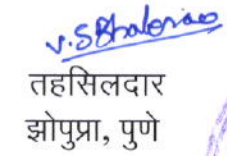 V.SBhalerao
तहसिलदार
झोपुप्रा, पुणे